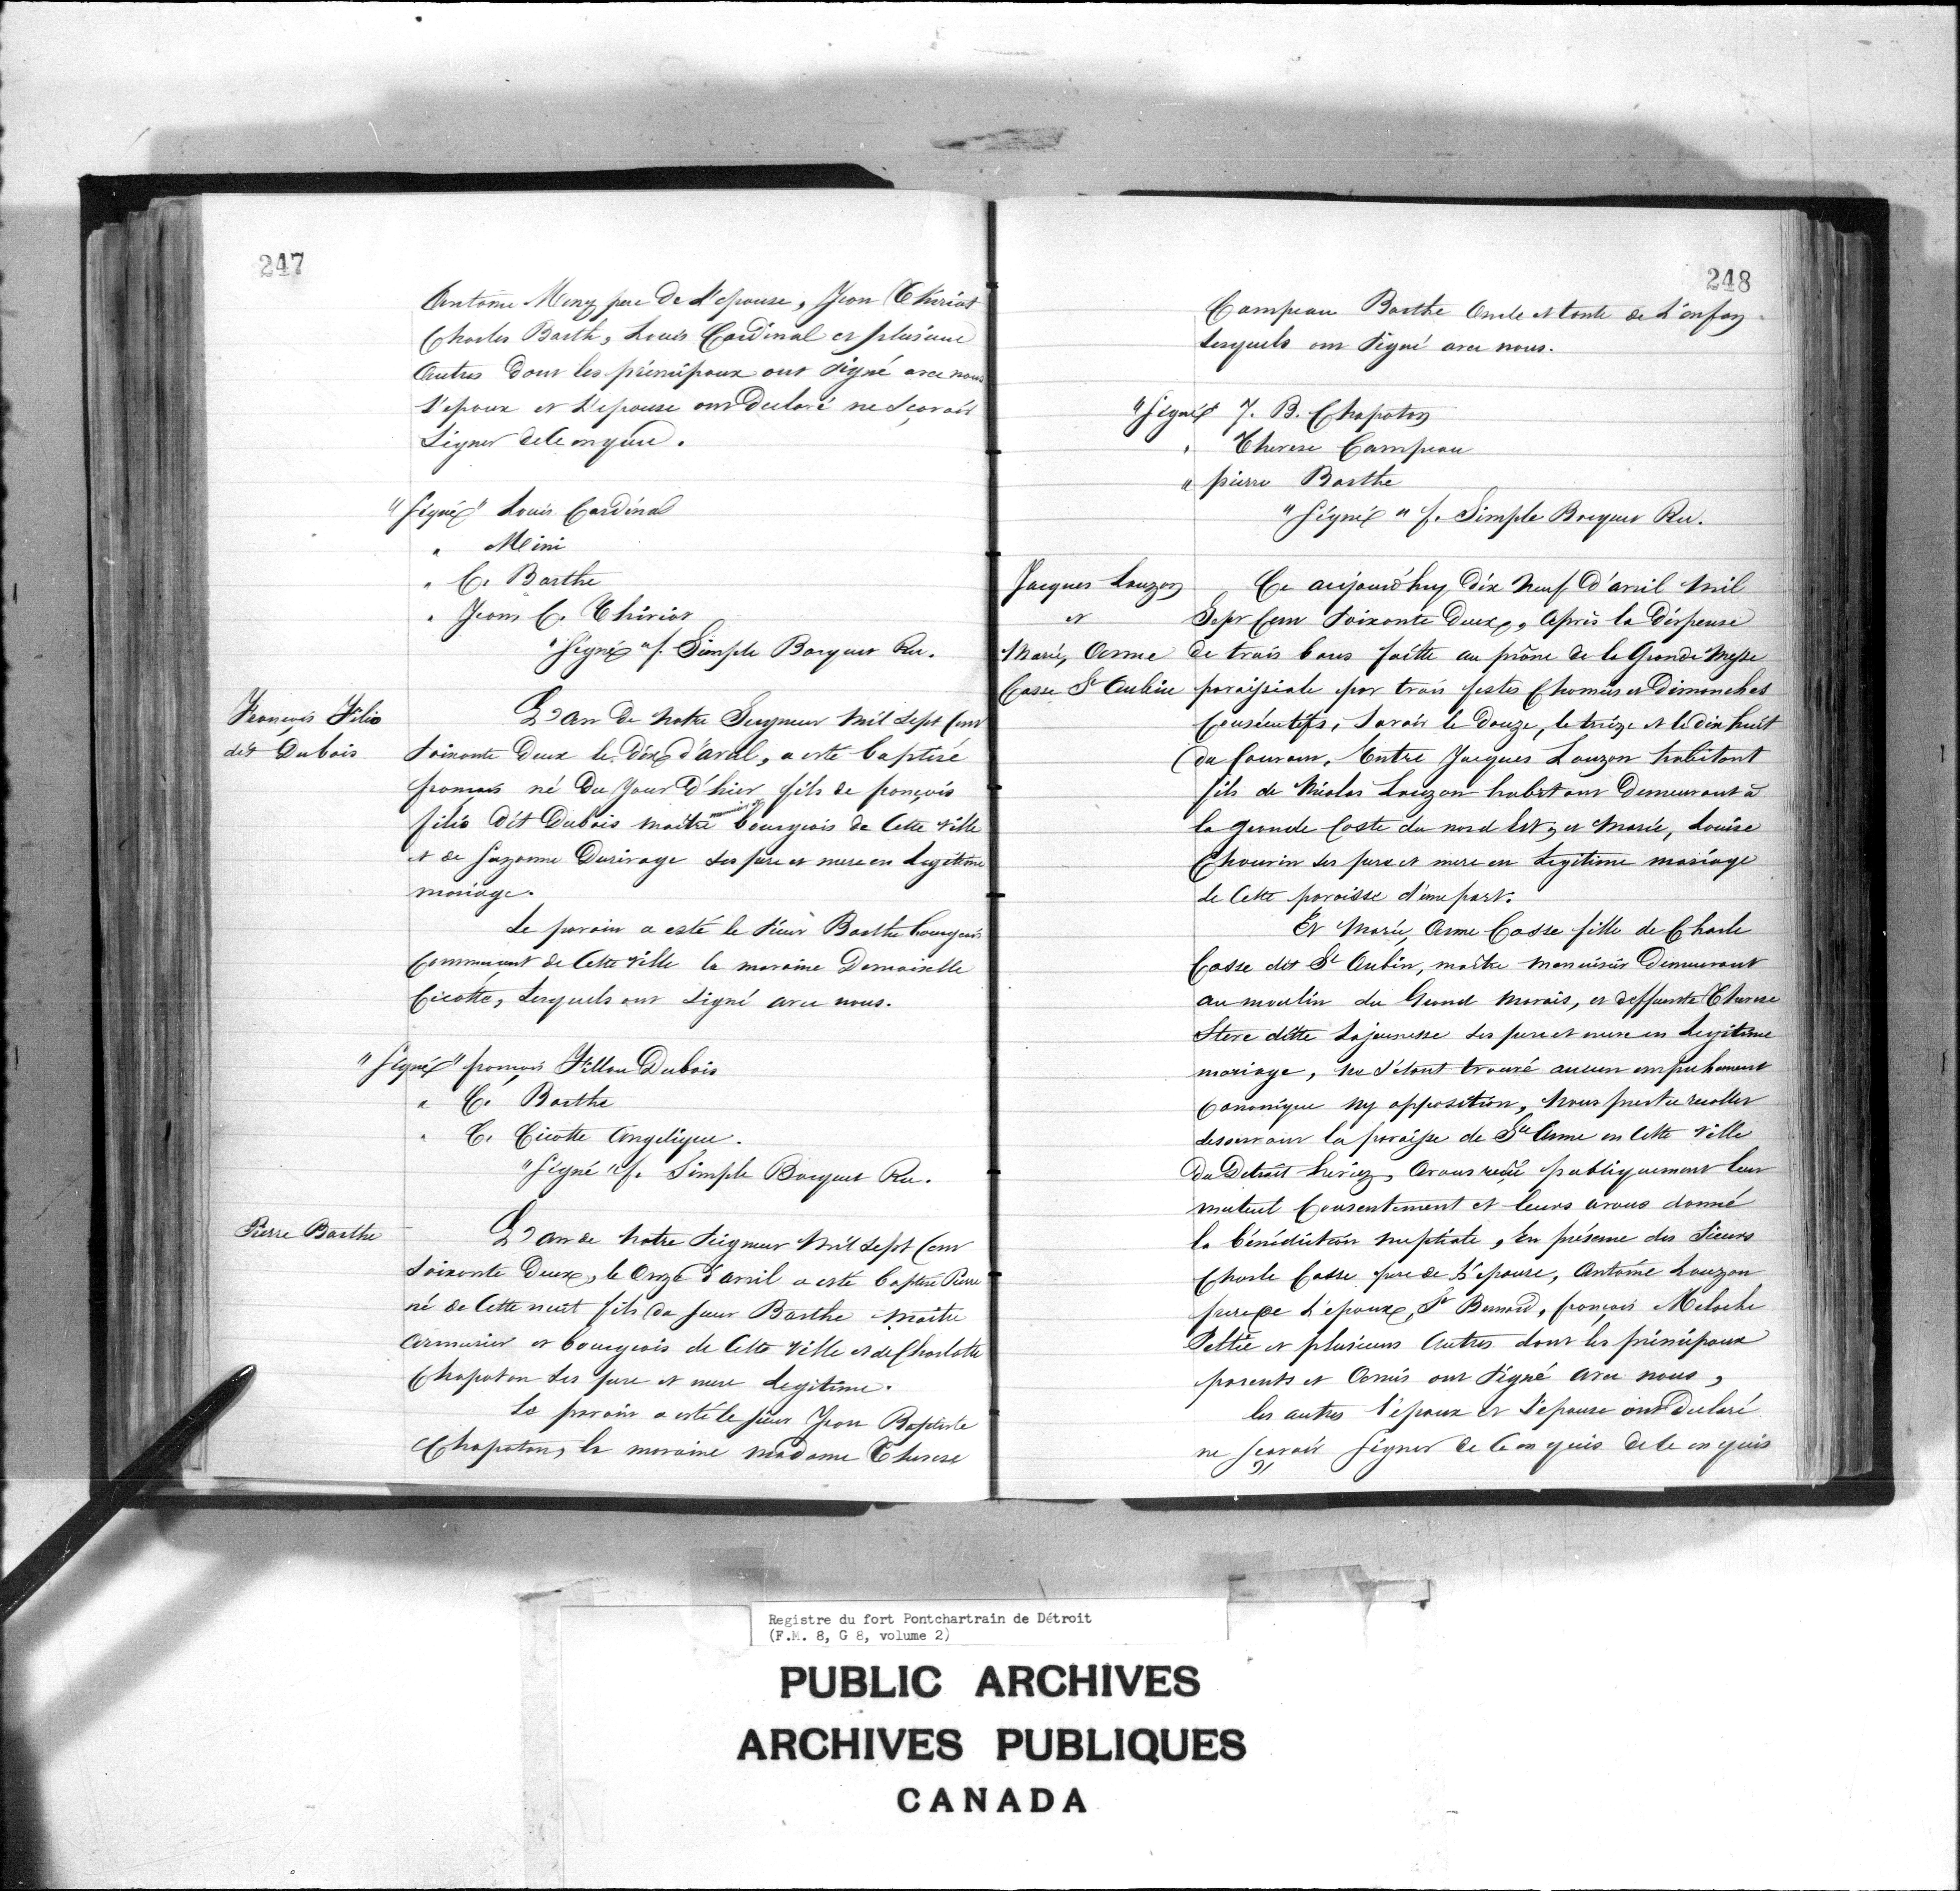 247
Antoine Meny pere de L'epouse, Jean Thiriot
Charles Barth, Louis Cardinal et plusieurs
Autres dont les principaux ont signé avec nous
l'epoux et L'epouse ont declaré ne sçavoir
signer de ce enquis.
"Signé" Louis Cardinal
" Mini
" C. Barthe
" Jean C. Thiriot
"Signé" f. Simple Bocquet Rec.
François Filio
dit Dubois
L'an de Notre Seigneur mil sept Cent
soixante Deux le dix d'avril, a esté baptisé
françois né du Jour d'hier fils de françois
filio dit Dubois maitre bourgeois de Cette ville
et de Suzanne Durivage ses pere et mere en Legitime
mariage.
Le parain a esté le sieur Barthe bourgeois
Commercent de Cette ville la maraine Demoiselle
Cicotte, Lesquels ont signé avec nous.
"Signé" françois Fillou Dubois
" C. Barthe
" C. Cicotte Angelique.
"Signé" f. Simple Bocquet Rec.
Pierre Barthe
L'an de Notre Seigneur Mil Sept Cent
Soixante Deux, le Onze d'avril a esté baptisé Pierre
né de Cette nuit fils du sieur Barthe Maitre
Armurier et bourgeois de Cette ville et de Charlotte
Chapoton ses pere et mere Legitime.
Le parain a esté le sieur Jean Baptiste
Chapoton, la maraine madame Therese
248
Campeau Barthe Oncle et tante de L'enfan
Lesquels ont signé avec nous.
"Signé" J. B. Chapoton
" Therese Campeau
" pierre Barthe
"Signé" f. Simple Bocquet Rec.
Jacques Lauzon
et
Marie, Anne
Casse St Aubin
Ce aujourd'huy Dix Neuf d'avril Mil
Sept Cent Soixante Deux, Après la Dispense
de trois bans faitte au prône de la Grande Messe
paroissiale par trois festes Chomées et Dimanches
Consécutifs, Savoir le Douze, le treize et le dix huit
du Courant, Entre Jacques Lauzon habitant
fils de Nicolas Lauzon habitant Demeurant à
la grande Coste du nord Est, et Marie, Louise
Chauvin ses pere et mere en Legitime mariage
de Cette paroisse d'une part.
Et Marie, Anne Casse fille de Charle
Casse dit St Aubin, maitre menuisier Demeurant
au moulin du Grand Marais, et deffunte Therese
Steve ditte Lajeunesse ses pere et mere en Legitime
mariage, ne s'étant trouvé aucun empechement
Canonique ny opposition, Nous pretre recollet
desservant la paroisse de Ste Anne en Cette ville
du Detroit Lseriez, Avons reçu publiquement leur
mutuel Consentement et leurs avons donné
la bénédiction nuptiale, En présence des Sieurs
Charle Casse pere de L'epouse, Antoine Lauzon
frere de L'epoux, St Bernard, françois Meloche
Peltié et plusieurs Autres dont les principaux
parents et Amis ont signé avec nous,
les autres l'epoux et l'epouse ont declaré
ne sçavoir signer de ce enquis de ce enquis
Registre du fort Pontchartrain de Détroit
(F.M. 8, G 8, volume 2)
PUBLIC ARCHIVES
ARCHIVES PUBLIQUES
CANADA